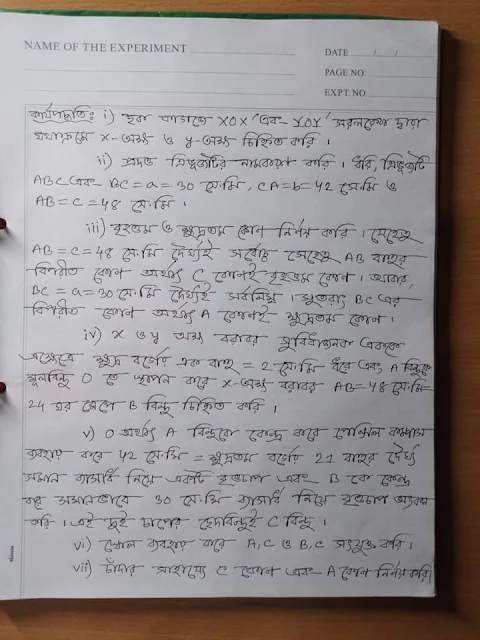 NAME OF THE EXPERIMENT
DATE / /
PAGE NO.
EXPT. NO.
কার্যপদ্ধতি: i) ছক কাগজে XOX′ এবং YOY′ সরলরেখা দ্বারা
যথাক্রমে x-অক্ষ ও y-অক্ষ চিহ্নিত করি।
ii) প্রদত্ত ত্রিভুজটির নামকরণ করি। ধরি, ত্রিভুজটি
ABC এবং BC=a=30 সে.মি, CA=b=42 সে.মি ও
AB=c=48 সে.মি.
iii) বৃহত্তম ও ক্ষুদ্রতম কোণ নির্ণয় করি। যেহেতু
AB=c=48 সে.মি দৈর্ঘ্যই সর্বোচ্চ সেহেতু AB বাহুর
বিপরীত কোণ অর্থাৎ C কোণই বৃহত্তম কোণ। আবার,
BC=a=30 সে.মি দৈর্ঘ্যই সর্বনিম্ন। সুতরাং BC এর
বিপরীত কোণ অর্থাৎ A কোণই ক্ষুদ্রতম কোণ।
iv) x ও y অক্ষ বরাবর সুবিধাজনক একক
এক্ষেত্রে ক্ষুদ্র বর্গের এক বাহু = 2 সে.মি ধরে এবং A বিন্দুকে
মূলবিন্দু O তে স্থাপন করে x-অক্ষ বরাবর AB=48 সে.মি=
24 ঘর মেপে B বিন্দু চিহ্নিত করি।
v) O অর্থাৎ A বিন্দুকে কেন্দ্র করে পেন্সিল কম্পাস
ব্যবহার করে 42 সে.মি = ক্ষুদ্রতম বর্গের 21 বাহুর দৈর্ঘ্য
সমান ব্যাসার্ধ নিয়ে একটি বৃত্তচাপ এবং B কে কেন্দ্র
করে সমানভাবে 30 সে.মি ব্যাসার্ধ নিয়ে বৃত্তচাপ অংকন
করি। এই দুই চাপের ছেদবিন্দুই C বিন্দু।
vi) স্কেল ব্যবহার করে A,C ও B,C সংযুক্ত করি।
vii) চাঁদার সাহায্যে C কোণ এবং A কোণ নির্ণয় করি।